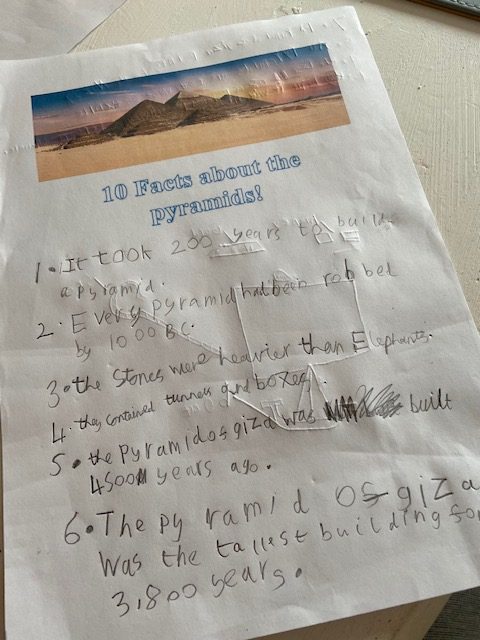 10 Facts about the
pyramids!
1. It took 200 years to build
a pyramid.
2. Every pyramid had bein robbed
by 1000 BC.
3. the stones were heavier than Elephants.
4. they contained tunnels and boxes.
5. the pyramid os giza was built
4500 years ago.
6. The pyramid os giza
was the tallest building fo
3,800 years.